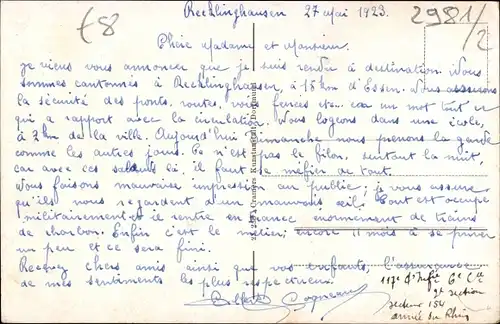 £8
2981/2
Recklinghausen 27 Mai 1923.
Chère Madame et Monsieur.
Je viens vous annoncer que je suis rendu à destination. Nous
sommes cantonnés à Recklinghausen, à 18 km d'Essen. Nous assurons
la sécurité des ponts, routes, voies ferrées etc... en un mot tout ce
qui a rapport avec la circulation. Nous logeons dans une école,
à 2 km de la ville. Aujourd'hui dimanche nous prenons la garde
comme les autres jours. Ce n'est pas le filon, surtout la nuit,
car avec ces salauds là, il faut se méfier de tout.
Nous faisons mauvaise impression au public; je vous assure
qu'ils nous regardent d'un mauvais œil. Tout est occupé
militairement et il rentre en France énormément de trains
de charbon. Enfin c'est le métier, encore 11 mois à se priver
un peu et ce sera fini.
Recevez chers amis ainsi que vos enfants, l'assurance
de mes sentiments les plus respectueux.
117e d'Infie 6e Cie
9e section
secteur 154
armée du Rhin
Cramers Kunstanstalt, Dortmund